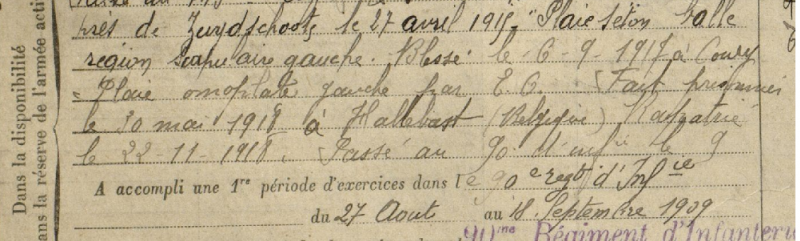 près de Zuydschoote le 27 avril 1915 "Plaie séton balle
région scapulaire gauche. Blessé le 6-9-1917 à Coucy
"Plaie omoplate gauche par E.O. Fait prisonnier
le 30 mai 1918 à Hallebast (Belgique) Rapatrié
le 22-11-1918. Passé au 90 d'infie le 9
A accompli une 1re période d'exercices dans le 90e regt d'Infie
du 27 Aout au 18 Septembre 1909
90me Régiment d'Infanterie
Dans la disponibilité
ans la réserve de l'armée acti